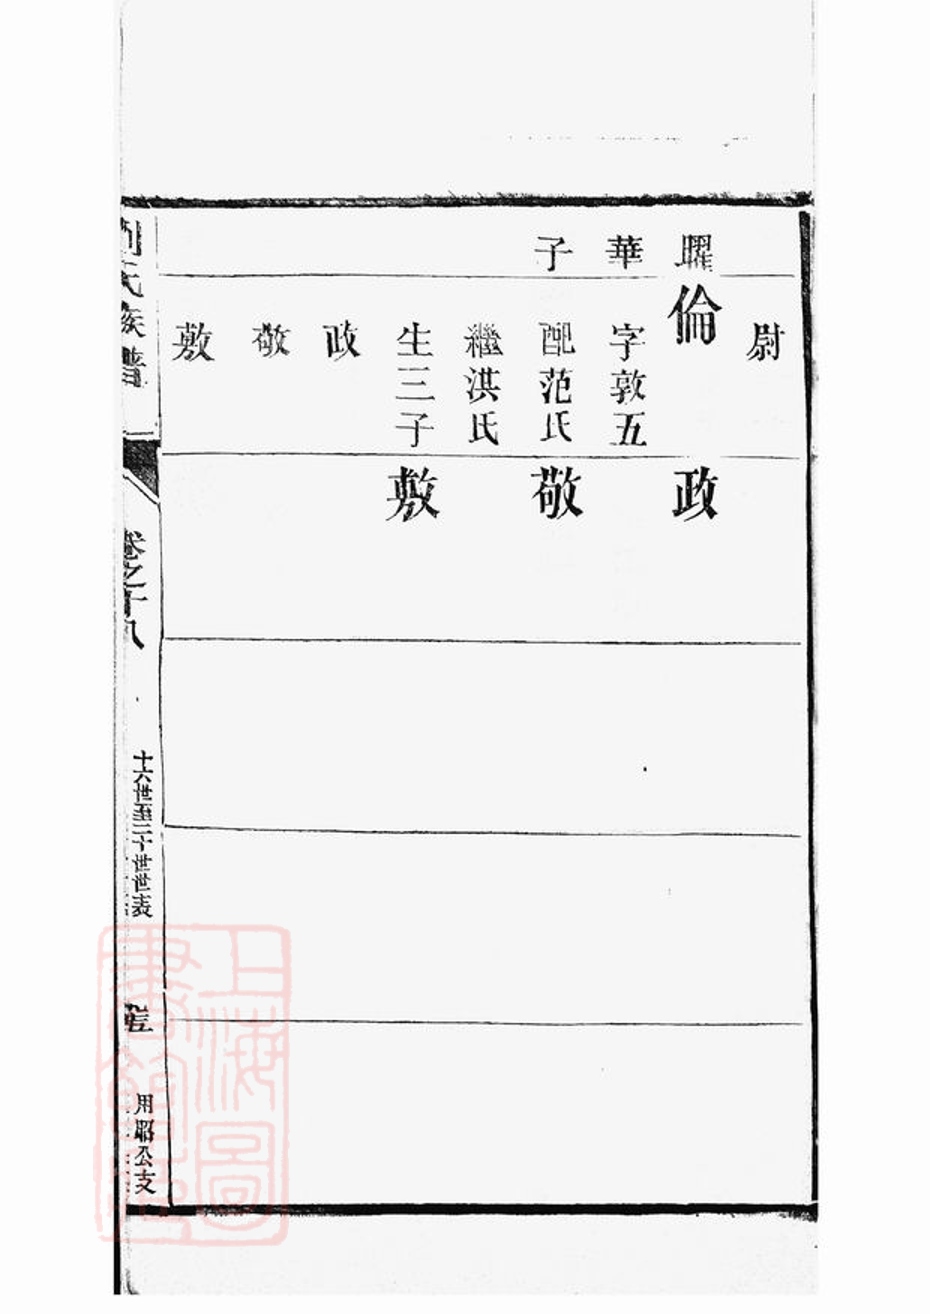 尉
曜華子
倫
字敦五
配范氏
繼洪氏
生三子
政
敬
敷
政
敬
敷
劉氏族譜
卷之十八
十六世至二十世世表
用昭公支
上海圖書館藏